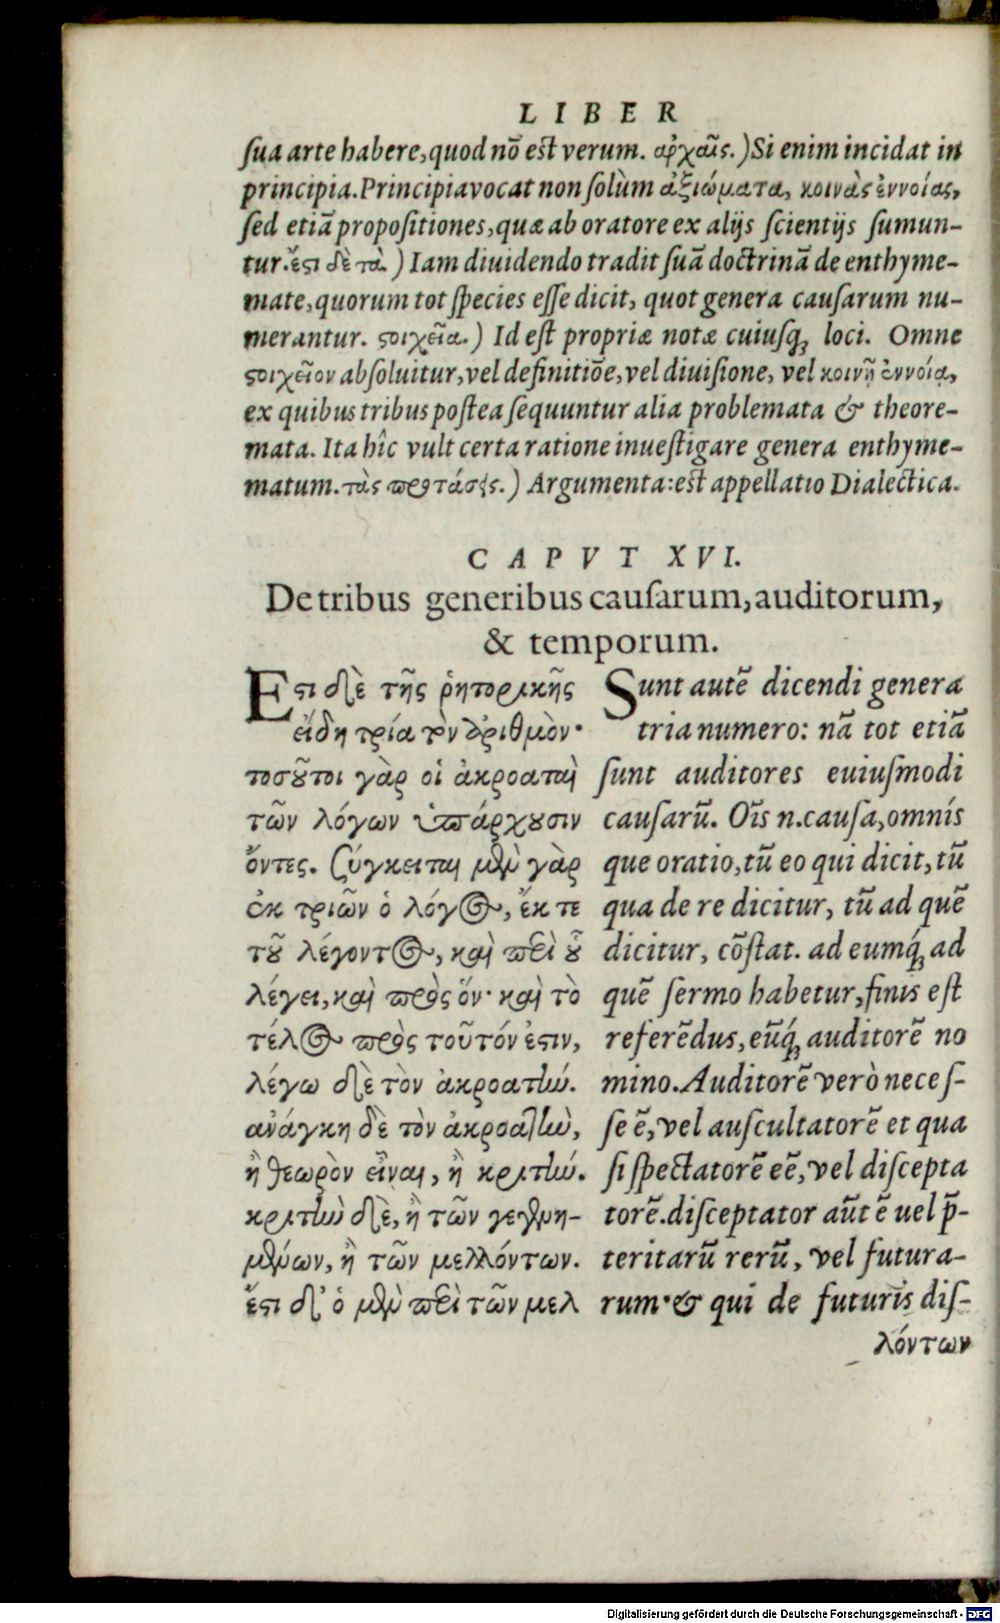 LIBER
ſua arte habere, quod nō est verum. ἀρχαῖς.) Si enim incidat in
principia. Principia vocat non ſolùm ἀξιώματα, κοινὰς ἐννοίας,
ſed etiā propoſitiones, quæ ab oratore ex alijs ſcientijs ſumun-
tur. ἔϛι δὲ τὰ.) Iam diuidendo tradit ſuā doctrinā de enthyme-
mate, quorum tot ſpecies eſſe dicit, quot genera cauſarum nu-
merantur. ϛοιχεῖα.) Id eſt propriæ notæ cuiuſq́; loci. Omne
ϛοιχεῖον abſoluitur, vel definitiōe, vel diuiſione, vel κοινῇ ἐννοίᾳ,
ex quibus tribus poſtea ſequuntur alia problemata & theore-
mata. Ita hîc vult certa ratione inueſtigare genera enthyme-
matum. τὰς προτάσεις.) Argumenta: eſt appellatio Dialectica.
CAPVT XVI.
De tribus generibus cauſarum, auditorum,
& temporum.
Εϛι δὲ τῆς ῥητορικῆς
εἴδη τρία τὸν ἀριθμὸν·
τοσοῦτοι γὰρ οἱ ἀκροαταὶ
τῶν λόγων ὑπάρχουσιν
ὄντες. Σύγκειται μὲν γὰρ
ἐκ τριῶν ὁ λόγος, ἔκ τε
τοῦ λέγοντος, καὶ περὶ οὗ
λέγει, καὶ πρὸς ὅν· καὶ τὸ
τέλος πρὸς τοῦτόν ἐϛιν,
λέγω δὲ τὸν ἀκροατήν.
ἀνάγκη δὲ τὸν ἀκροατὴν,
ἢ θεωρὸν εἶναι, ἢ κριτήν.
κριτὴν δὲ, ἢ τῶν γεγενη-
μένων, ἢ τῶν μελλόντων.
ἔϛι δ' ὁ μὲν περὶ τῶν μελ
Sunt autē dicendi genera
tria numero: nā tot etiā
ſunt auditores euiuſmodi
cauſarū. Oīs n. cauſa, omnís
que oratio, tū eo qui dicit, tū
qua de re dicitur, tū ad quē
dicitur, cōſtat. ad eumq́; ad
quē ſermo habetur, finis eſt
referēdus, eūq́; auditorē no
mino. Auditorē verò neceſ-
ſe ē, vel auſcultatorē et qua
ſi ſpectatorē eē, vel diſcepta
torē. diſceptator aūt ē uel p̄-
teritarū rerū, vel futura-
rum· & qui de futuris diſ-
λόντων
Digitalisierung gefördert durch die Deutsche Forschungsgemeinschaft - DFG